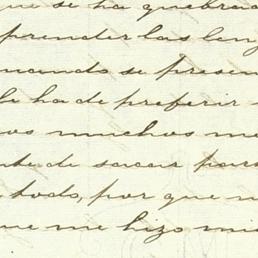 que se ha quebrad
prender las leng
mando se presen
le ha de preferir
os muchos me
nte de sacar para
todo, por que n
ue me hizo mi